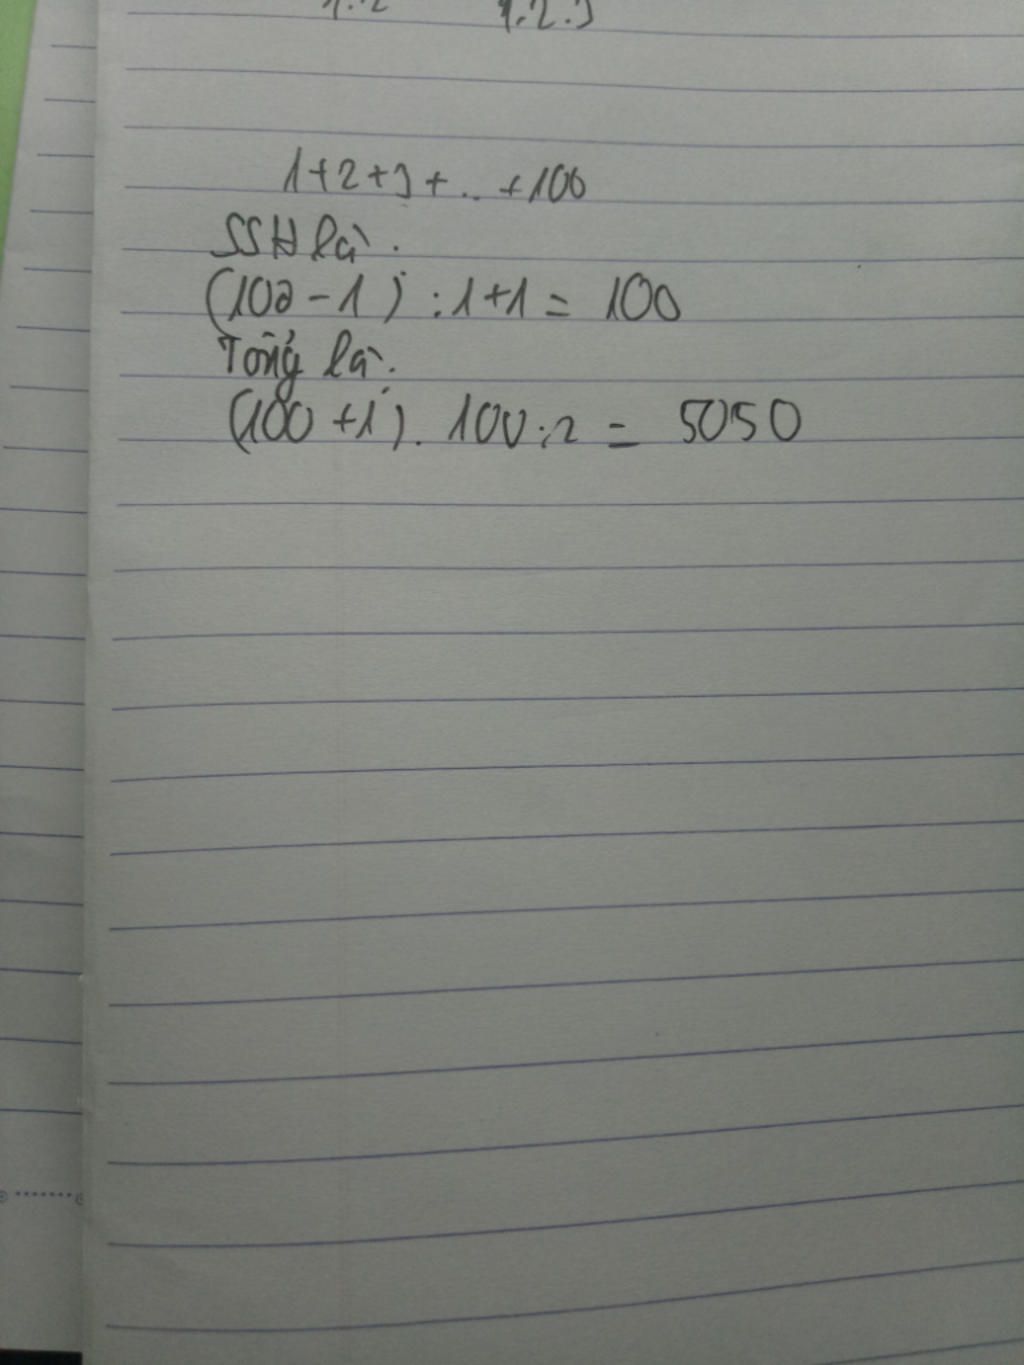 1.2 1.2.3
1+2+3+...+100
SSH là:
(100-1):1+1= 100
Tổng là:
(100+1). 100:2 = 5050